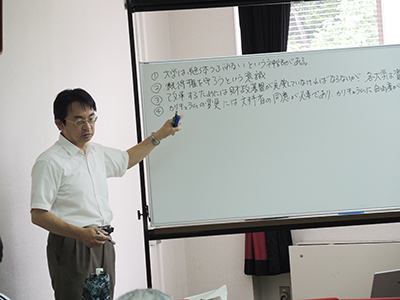 ① 大学は絶対つぶれないという神話がある。
② 既得権を守ろうという意識
③ 改革するためには財政基盤が充実していなければならないが 各大学は
④ カリキュラムの変更には文科省の同意が必要であり、カリキュラムに自由